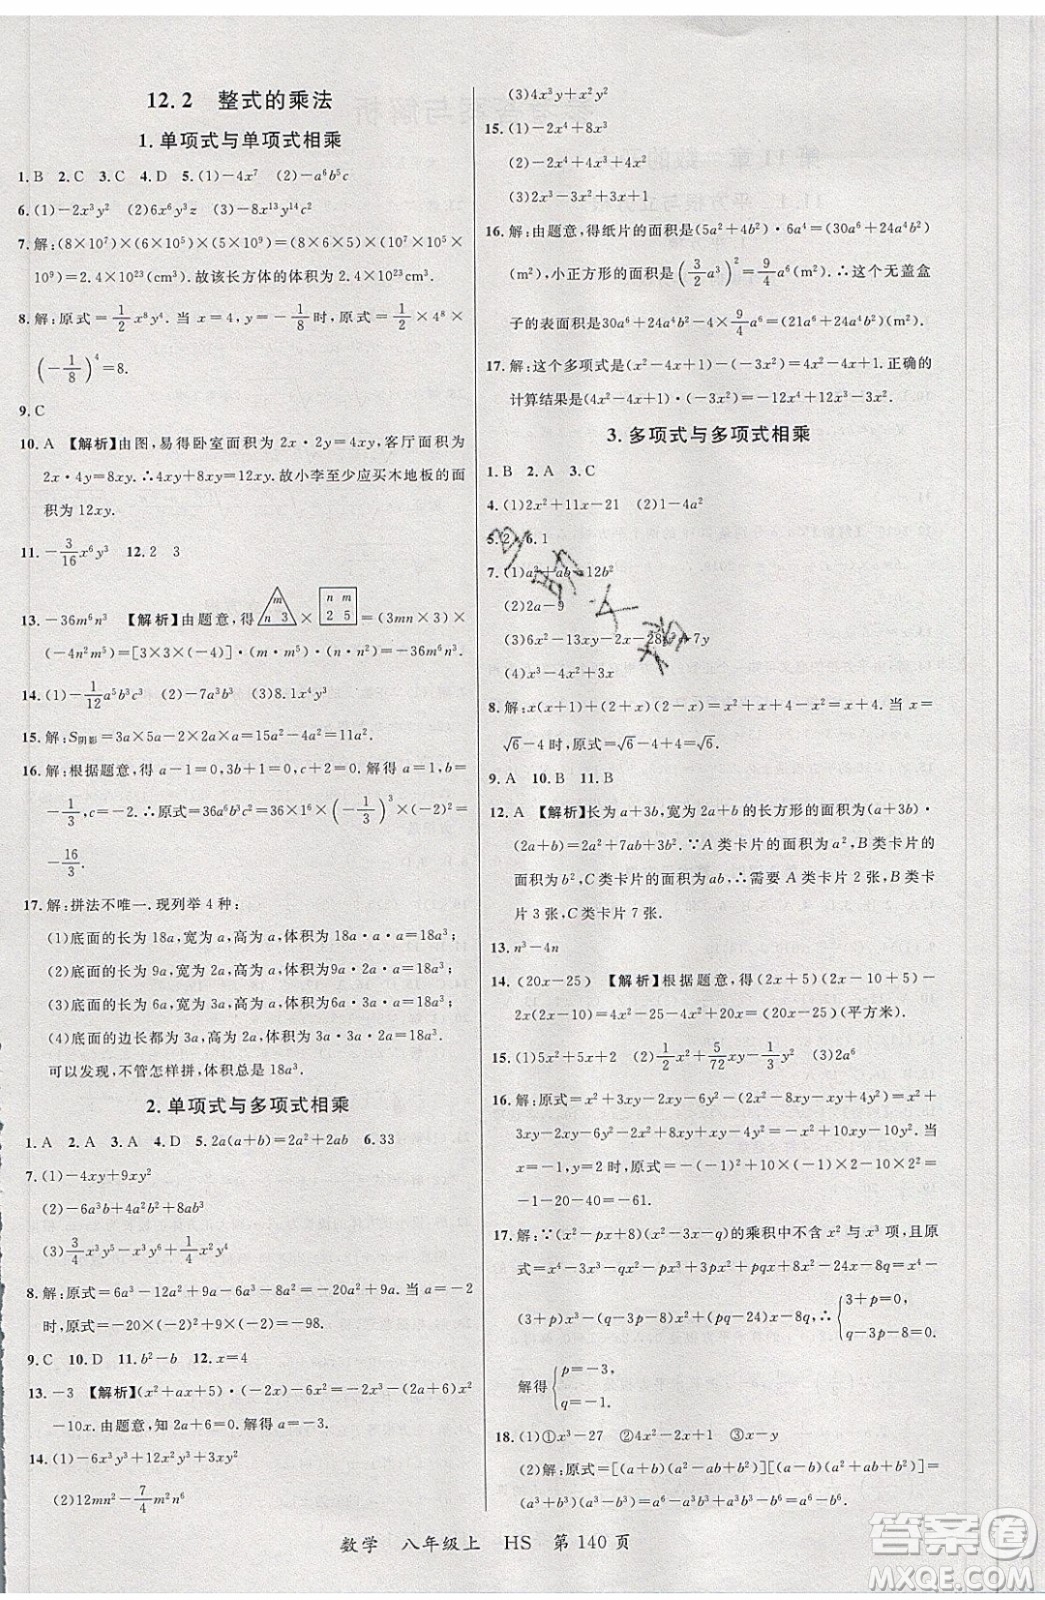 12.2 整式的乘法
1.单项式与单项式相乘
1.B 2.C 3.C 4.D 5.(1)-4x⁷ (2)-a⁶b⁵c
6.(1)-2x³y² (2)6x⁶y³z (3)-8x¹³y¹⁴c²
7.解:(8×10⁷)×(6×10⁵)×(5×10⁹)=(8×6×5)×(10⁷×10⁵×
10⁹)=2.4×10²³(cm³).故该长方体的体积为2.4×10²³cm³.
8.解:原式=1/2x⁸y⁴.当x=4,y=-1/8时,原式=1/2×4⁸×
(-1/8)⁴=8.
9.C
10.A 【解析】由图,易得卧室面积为2x·2y=4xy,客厅面积为
2x·4y=8xy.∴4xy+8xy=12xy.故小李至少应买木地板的面
积为12xy.
11.-3/16x⁶y³ 12.2 3
13.-36m⁶n³ 【解析】由题意,得 m n 3 × n m 2 5 =(3mn×3)×
(-4n²m⁵)=[3×3×(-4)]·(m·m⁵)·(n·n²)=-36m⁶n³.
14.(1)-1/12a⁵b³c³ (2)-7a³b³ (3)8.1x⁴y³
15.解:S阴影=3a×5a-2×2a×a=15a²-4a²=11a².
16.解:根据题意,得a-1=0,3b+1=0,c+2=0.解得a=1,b=
-1/3,c=-2.∴原式=36a⁶b³c²=36×1×(-1/3)³×(-2)²=
-16/3.
17.解:拼法不唯一.现列举4种:
(1)底面的长为18a,宽为a,高为a,体积为18a·a·a=18a³;
(2)底面的长为9a,宽为2a,高为a,体积为9a·2a·a=18a³;
(3)底面的长为6a,宽为3a,高为a,体积为6a·3a·a=18a³;
(4)底面的边长都为3a,高为2a,体积为3a·3a·2a=18a³.
可以发现,不管怎样拼,体积总是18a³.
2.单项式与多项式相乘
1.A 2.A 3.A 4.D 5.2a(a+b)=2a²+2ab 6.33
7.(1)-4xy+9xy²
(2)-6a³b-2a²b²+8ab³
(3)3/4x³y⁵-x³y³+1/4x²y⁴
8.解:原式=6a³-12a²+9a-6a³-8a²=-20a²+9a.当a=-2
时,原式=-20×(-2)²+9×(-2)=-98.
9.C 10.D 11.b²-b 12.x=4
13.-3 【解析】(x²+ax+5)·(-2x)-6x²=-2x³-(2a+6)x²
-10x.由题意,知2a+6=0.解得a=-3.
14.(1)-6x³y³+12x²y³+3xy²
(2)12mn²-7/4m²n⁶
(3)4x³+x²y
15.(1)-4x³+8x²
(2)-2x⁴+4x³+4x²
(3)2x³-3x²+3x
16.解:由题意,得纸片的面积是(5a²+4b²)·6a⁴=(30a⁶+24a⁴b²)
(m²),小正方形的面积是(3/2a³)²=9/4a⁶(m²).∴这个无盖盒
子的表面积是30a⁶+24a⁴b²-4×9/4a⁶=(21a⁶+24a⁴b²)(m²).
17.解:这个多项式是(x²-4x+1)-(-3x²)=4x²-4x+1.正确的
计算结果是(4x²-4x+1)·(-3x²)=-12x⁴+12x³-3x².
3.多项式与多项式相乘
1.B 2.A 3.C
4.(1)2x²+11x-21 (2)1-4a²
5.2 6.1
7.(1)a²+ab-12b²
(2)2a-9
(3)6x²-13xy-2x-28y²+7y
(4)-4x²+3x
8.解:x(x+1)+(2+x)(2-x)=x²+x+4-x²=x+4.当x=
√6-4时,原式=√6-4+4=√6.
9.A 10.B 11.B
12.A 【解析】长为a+3b,宽为2a+b的长方形的面积为(a+3b)·
(2a+b)=2a²+7ab+3b².∵A类卡片的面积为a²,B类卡片的
面积为b²,C类卡片的面积为ab,∴需要A类卡片2张,B类卡
片3张,C类卡片7张.
13.n³-4n
14.(20x-25) 【解析】根据题意,得(2x+5)(2x-10+5)-
2x(2x-10)=4x²-25-4x²+20x=(20x-25)(平方米).
15.(1)5x²+2x+1 (2)1/2x²+5/72xy-1/3y² (3)2a⁶
16.解:原式=x²+3xy-2x²-8xy-xy-4y²=x²+3xy-2x²-
8xy+xy+4y²=-x²-4xy+4y².当x=-1,y=-5时,原式=-1-20+100
-1-20-140=-61.
17.解:∵(x²-px+8)(x²-3x-q)的乘积中不含x²与x³项,且原
(3+p)x³-(q-3p-8)x²+(pq-24)x-8q,∴{3+p=0, q-3p-8=0.
解得{p=-3, q=-1.
18.(1)①x³-27 ②2x³+1 ③x³-y³
(2)解:原式=[(a+b)(a²-ab+b²)][(a-b)(a²+ab+b²)]=
(a³+b³)(a³-b³)=a⁶-a³b³+a³b³-b⁶=a⁶-b⁶.
数学 八年级上 HS 第140页
答案圈
MXQE.COM